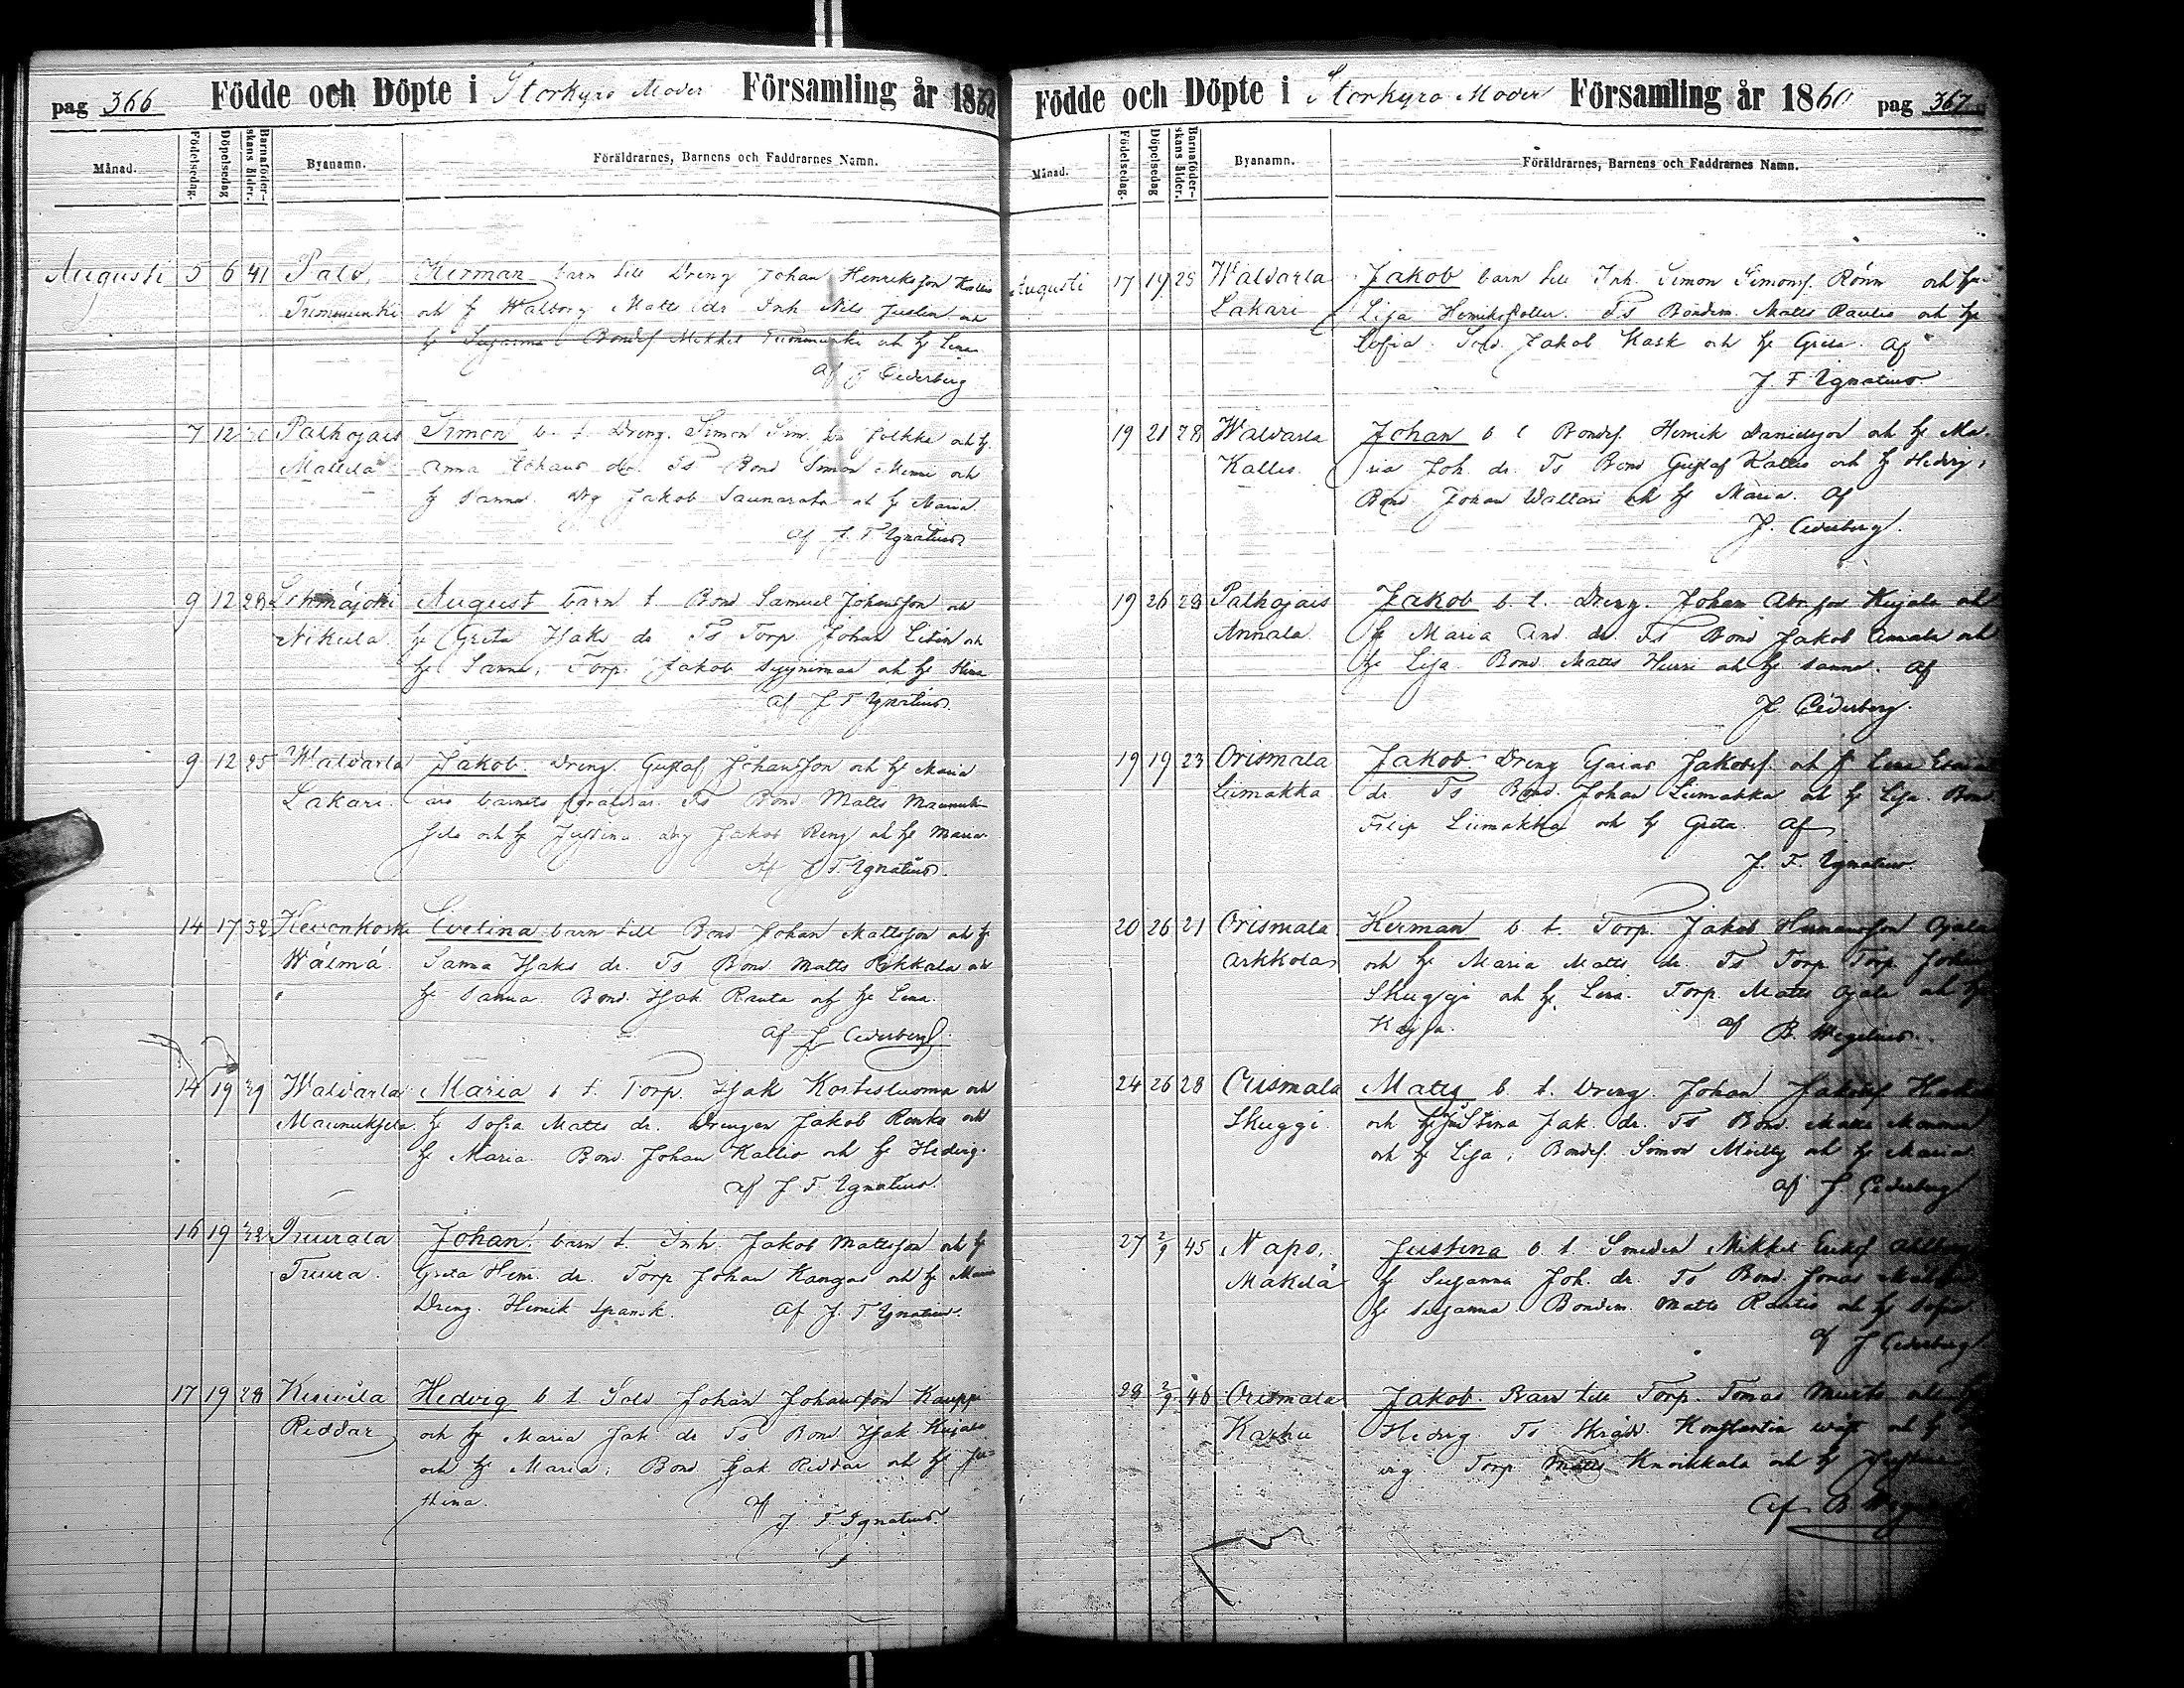 pag 366 Födde och Döpte i Storkyro Moder Församling år 1860
Månad. Födelsedag. Döpelsedag Barnaföderskans ålder. Byanamn. Föräldrarnes, Barnens och Faddrarnes Namn.
Augusti 5 6 41 Palo, Herman barn till Dreng Johan Henriksson Kallio
och h Walborg Matts dr Inh Nils Juslin och
h Susanna Bondes Mikkel och h Lena
Af J Cederberg
7 12 Palhojais Simon b. t. Dreng. Simon Sim. och h.
Mattila Anna Johans dr. Ts Bond Simon och
h Sanna. Dg Jakob och h Maria
af J. F Ignatius
9 12 28 Nikula August barn t Bond Samuel Johansson och
h Greta Isaks dr Ts Torp. Johan och
h Sanna; Torp. Jakob Syynimaa och h
af J F Ignatius.
9 12 25 Waldarla Jakob. Dreng. Gustaf Johansson och h Maria
Lakari äro barnets föräldrar. Ts Bond Matts Maunuk-
sela och h Justina. Dg Jakob Reng och h Maria
Af J F. Ignatius.
14 17 32 Kevonkoski Evelina barn till Bond Johan Mattsson och h
Wälmä. Sanna Isaks dr. Ts Bond Matts och
h Sanna. Bond. Isak Ranta och h Lena.
af J Cederberg.
14 19 29 Waldarla Maria b t. Torp. Isak Kortesluoma och
Maunuksela. h Sofia Matts dr. Drengen Jakob Ranka och
h Maria. Bond Johan Kallio och h Hedvig.
af J F. Ignatius.
16 19 32 Tuurala Johan. barn t. Inh. Jakob Mattsson och h
Tuura. Greta Henr. dr. Torp Johan Kangas och h Maria
Dreng. Henrik Spansk. af J. F Ignatius.
17 19 28 Kuivila Hedvig b t Sold Johan Johansson Kauppi
Reddar och h Maria Jak dr Ts Bond Isak Kujala
och h Maria; Bond Isak Riddar och h Ju-
stina. af
J. F. Ignatius.
Födde och Döpte i Storkyro Moder Församling år 1860 pag 367
Månad. Födelsedag. Döpelsedag Barnaföderskans ålder. Byanamn. Föräldrarnes, Barnens och Faddrarnes Namn.
Augusti 17 19 25 Waldarla Jakob barn till Inh. Simon Simons. Rönn och h
Lakari Lisa Henriksdotter. Ts Bondem. Matts Rautio och h
Sofia. Sold. Jakob Kask och h Greta. Af
J. F Ignatius.
19 21 28 Waldarla Johan b t Bondes. Henrik Danielsson och h Ma-
Kallio. ria Joh. dr. Ts Bond Gustaf Kallio och h Hedvig;
Bond Johan Wallari och h Maria. af
J. Cederberg.
19 26 28 Palhojais Jakob b. t. Dreng. Johan Abr. son Kujala och
Annala. h Maria And. dr. Ts Bond Jakob Annala och
h Lisa. Bond Matts Hurri och h Sanna. Af
J. Cederberg.
19 19 23 Orismala Jakob. Dreng Esaias Jakobs. och h Lena Esaias
Liimakka dr Ts Bond. Johan Liimakka och h Lisa. Bond.
Filip Liimakka och h Greta. af
J. F. Ignatius.
20 26 21 Orismala Herman b. t. Torp. Jakob Hermansson Ojala
Arkkola och h Maria Matts dr. Ts Torp. Torp. Johan
Skuggi och h Lena. Torp. Matts Ojala och h
Kajsa. af B. Wegelius.
24 26 28 Orismala Matts b. t. Dreng. Johan Jakobs
Skuggi. och h Justina Jak. dr. Ts Bond. Matts
och h Lisa; Bondes. Simon och h Maria
af J Cederberg
27 2/9 45 Napo, Justina b. t. Smeden Mikkel Eriks
Mäkelä h Susanna Joh. dr. Ts Bond. Jonas
h Susanna Bondem. Matts Rautio och h Sofia
af J Cederberg
28 2/9 46 Orismala Jakob. Barn till Torp. Tomas Murto och h
Karhu Hedvig. Ts Skrädd. Konstantin och h
vig. Torp. Matts Knoikkala och h
Af B.